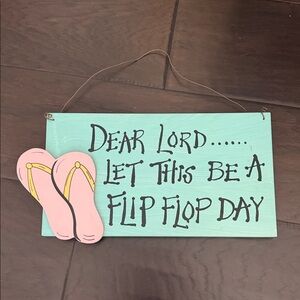 DEAR LORD......
LET THIS BE A
FLIP FLOP DAY